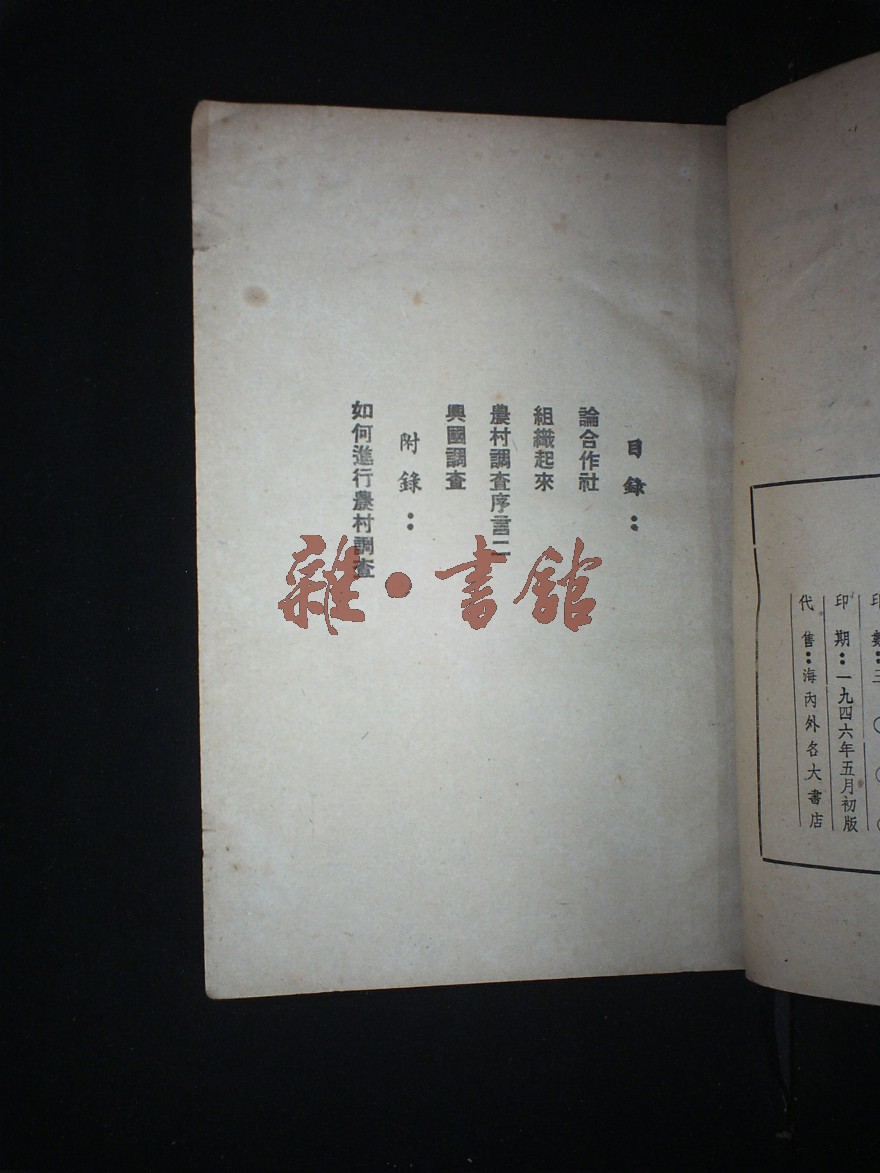 印數：三〇〇〇
印期：一九四六年五月初版
代售：海內外各大書店
目錄：
論合作社
組織起來
農村調查序言二
興國調查
附錄：
如何進行農村調查
雜·書館